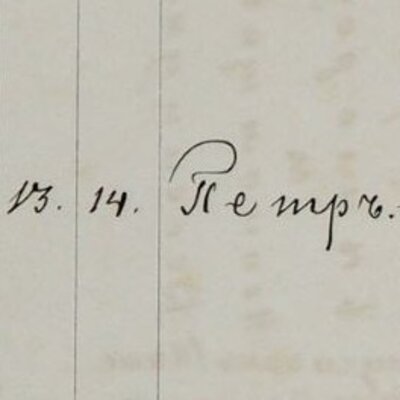 13. 14. Петръ.